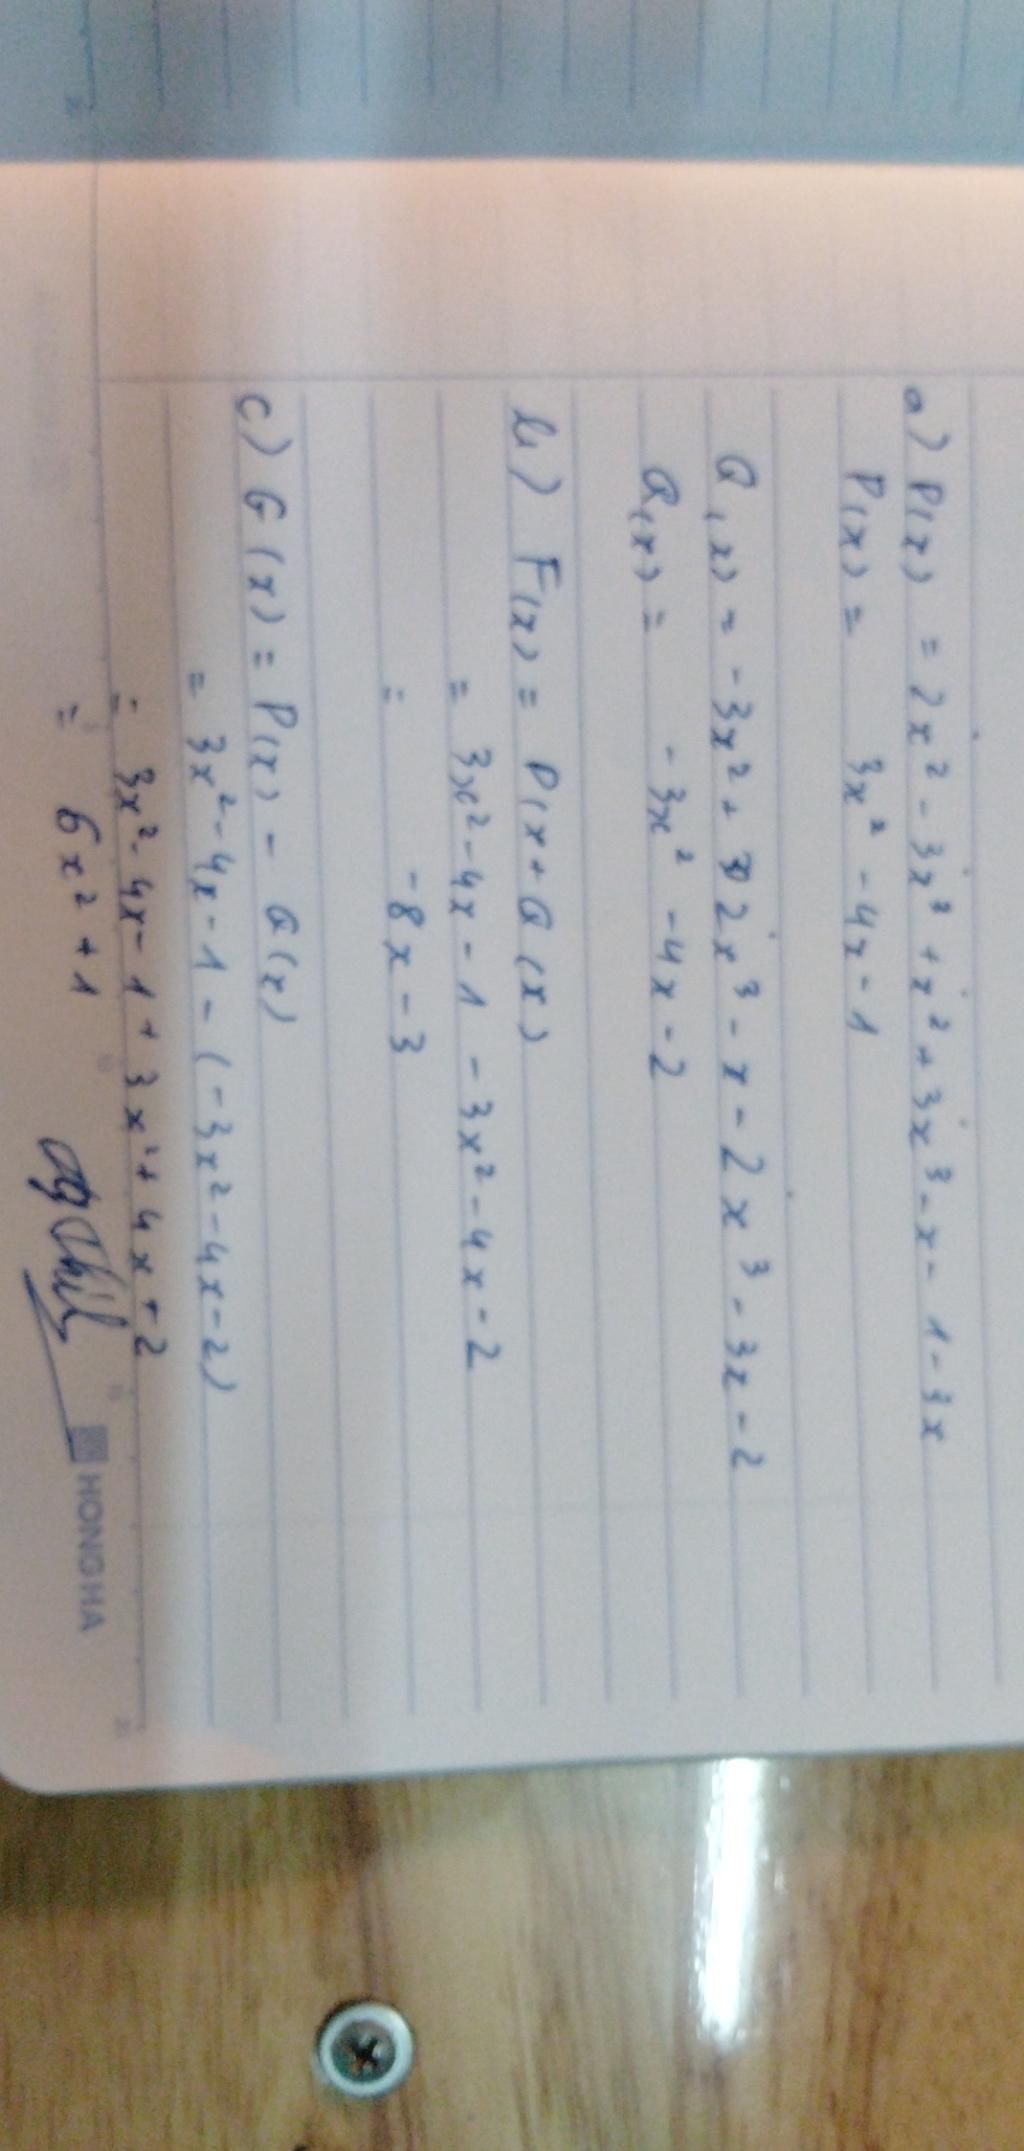 a) P(x) = 2x² - 3x³ + x² + 3x³ - x - 1 - 3x
P(x) = 3x² - 4x - 1
Q(x) = -3x² + 2x³ - x - 2x³ - 3x - 2
Q(x) = -3x² - 4x - 2
b) F(x) = P(x + Q(x)
= 3x² - 4x - 1 - 3x² - 4x - 2
= -8x - 3
c) G(x) = P(x) - Q(x)
= 3x² - 4x - 1 - (-3x² - 4x - 2)
= 3x² - 4x - 1 + 3x² + 4x + 2
= 6x² + 1
HONG HA